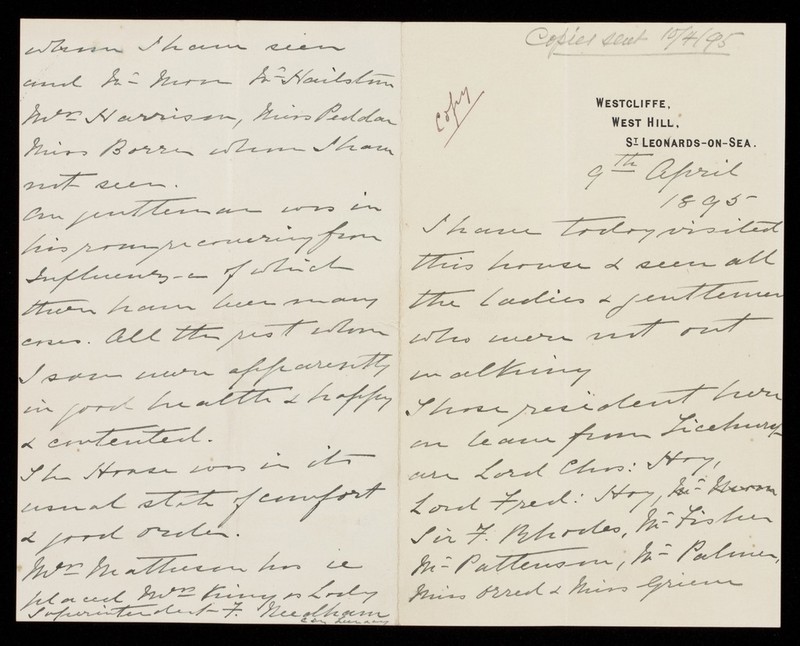 Copies sent 10/4/95
Copy
WESTCLIFFE,
WEST HILL,
ST LEONARDS-ON-SEA.
9th April
1895
I have today visited
this house & seen all
the ladies & gentlemen
who were not out
walking
Those resident here
on leave from Ticehurst
are Lord Chas: Hay,
Lord Fred: Hay,
Sir F. Rhodes, Mr Fisher
Mr Pattenson, Mr Palmer,
Miss Orred & Miss Greene
whom I have seen
and Mr Moon Mr Hailstone
Mrs Harrison, Miss Peddar
Miss Borrer whom I have
not seen.
One gentleman was in
his room recovering from
Influenza of which
there have been many
cases. All the rest whom
I saw were apparently
in good health & happy
& contented.
The House was in its
usual state of comfort
& good order.
Mrs Matheson has re
placed Mrs King as Lady
Superintendent F. Needham
Com Lunacy